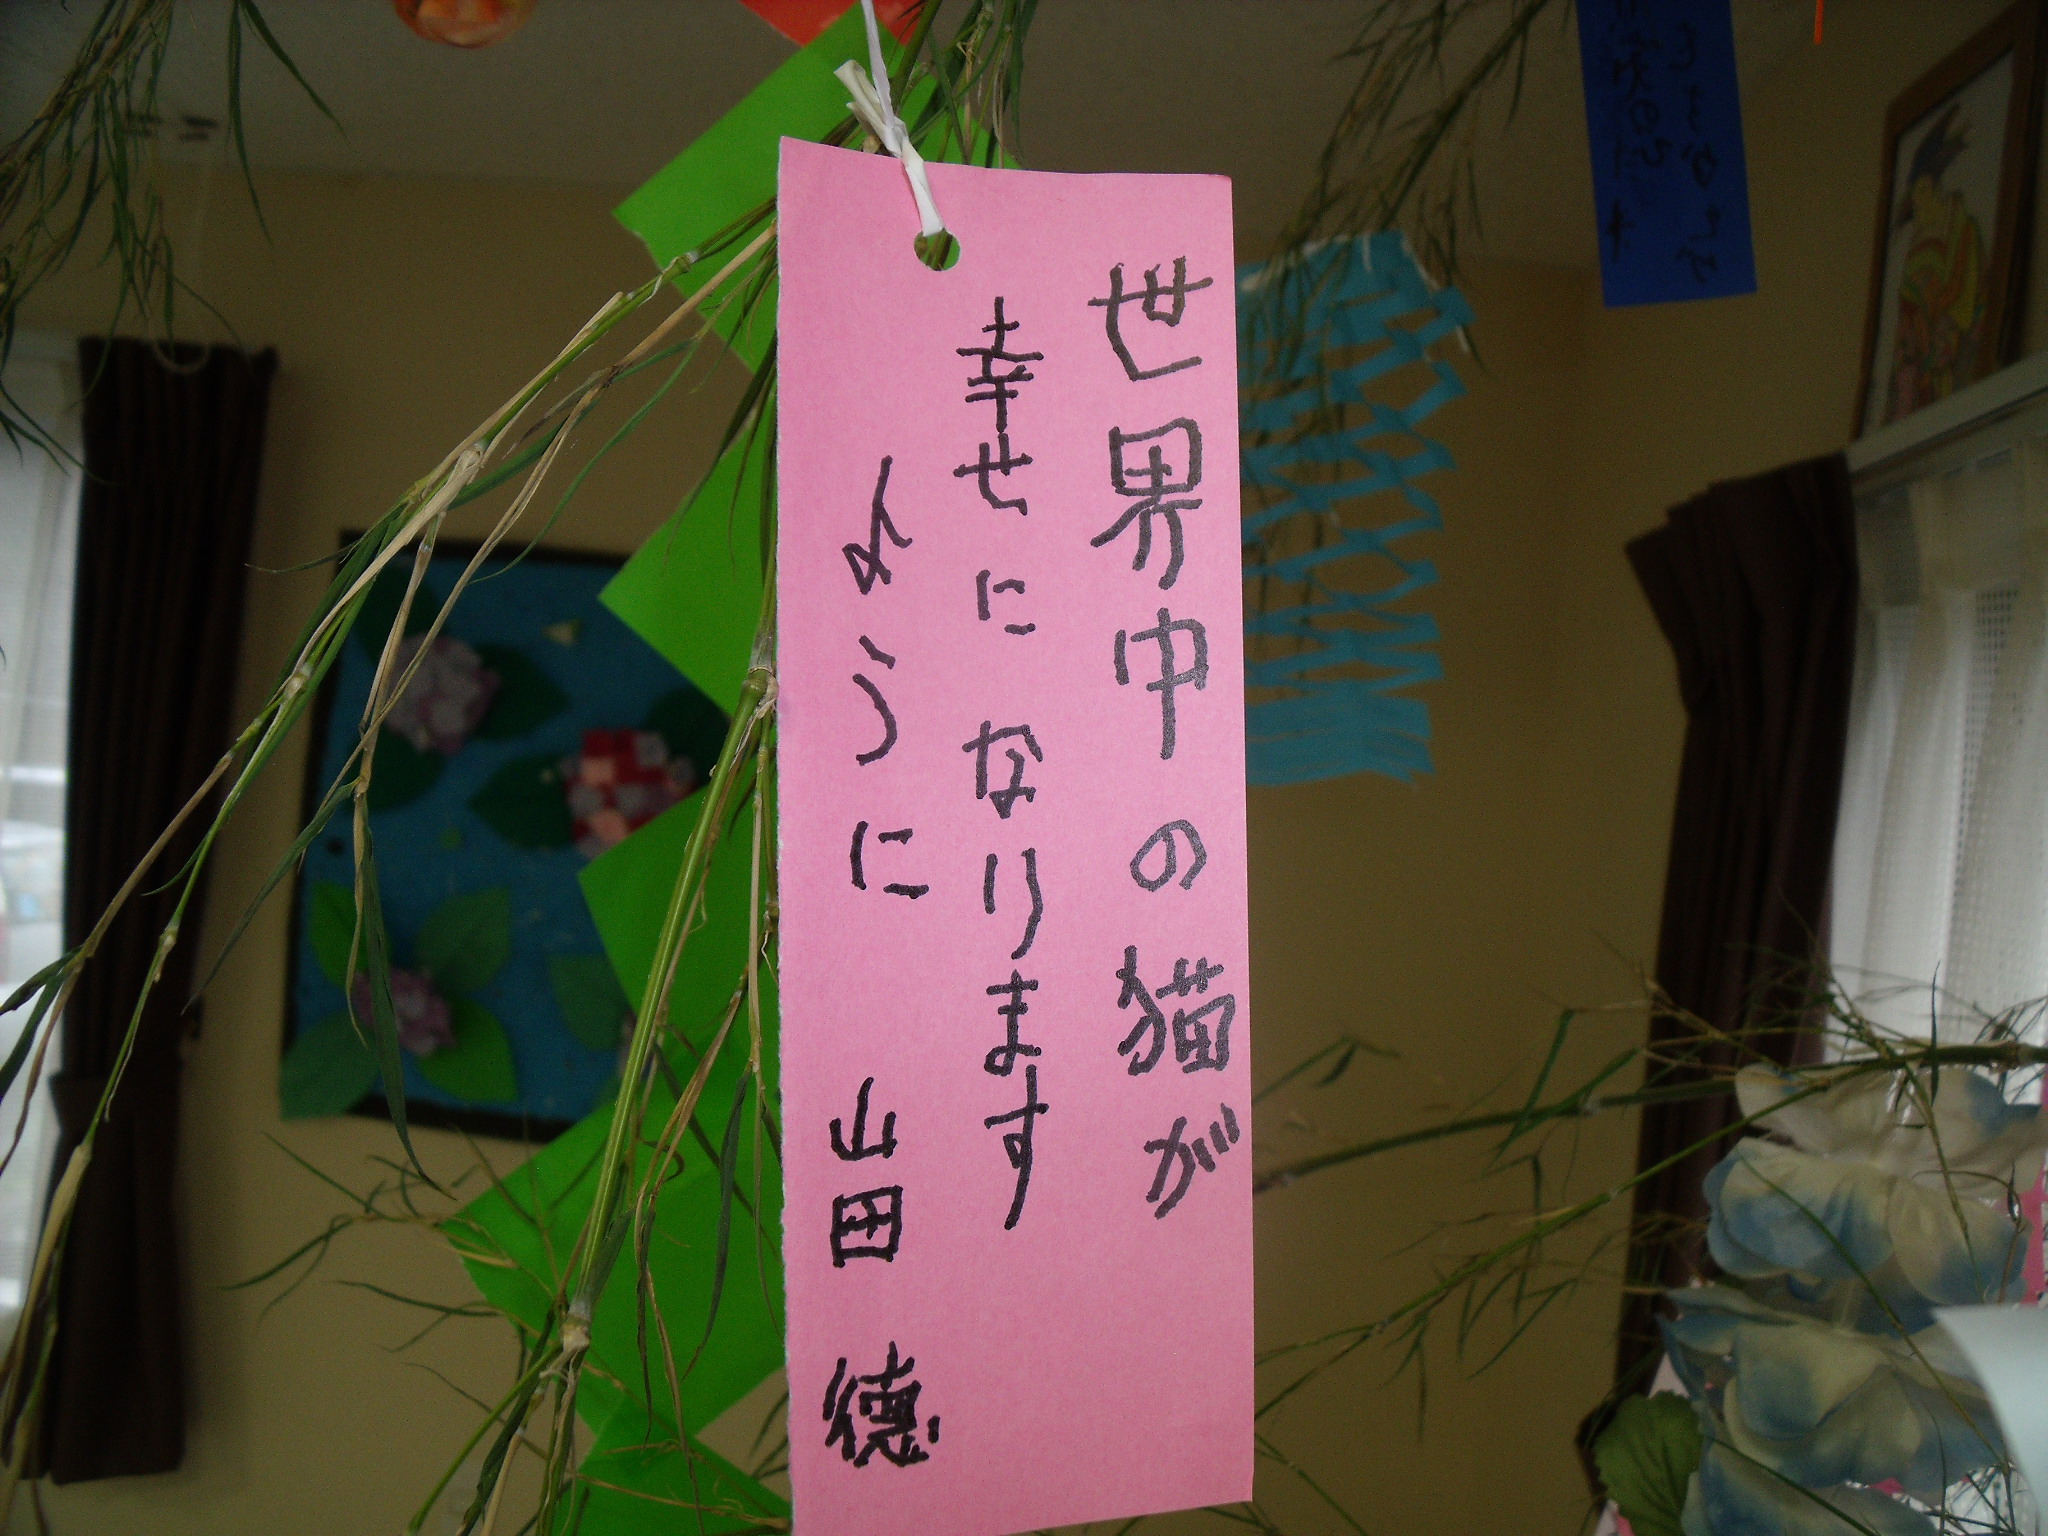 世界中の猫が
幸せになります
ように 山田 德